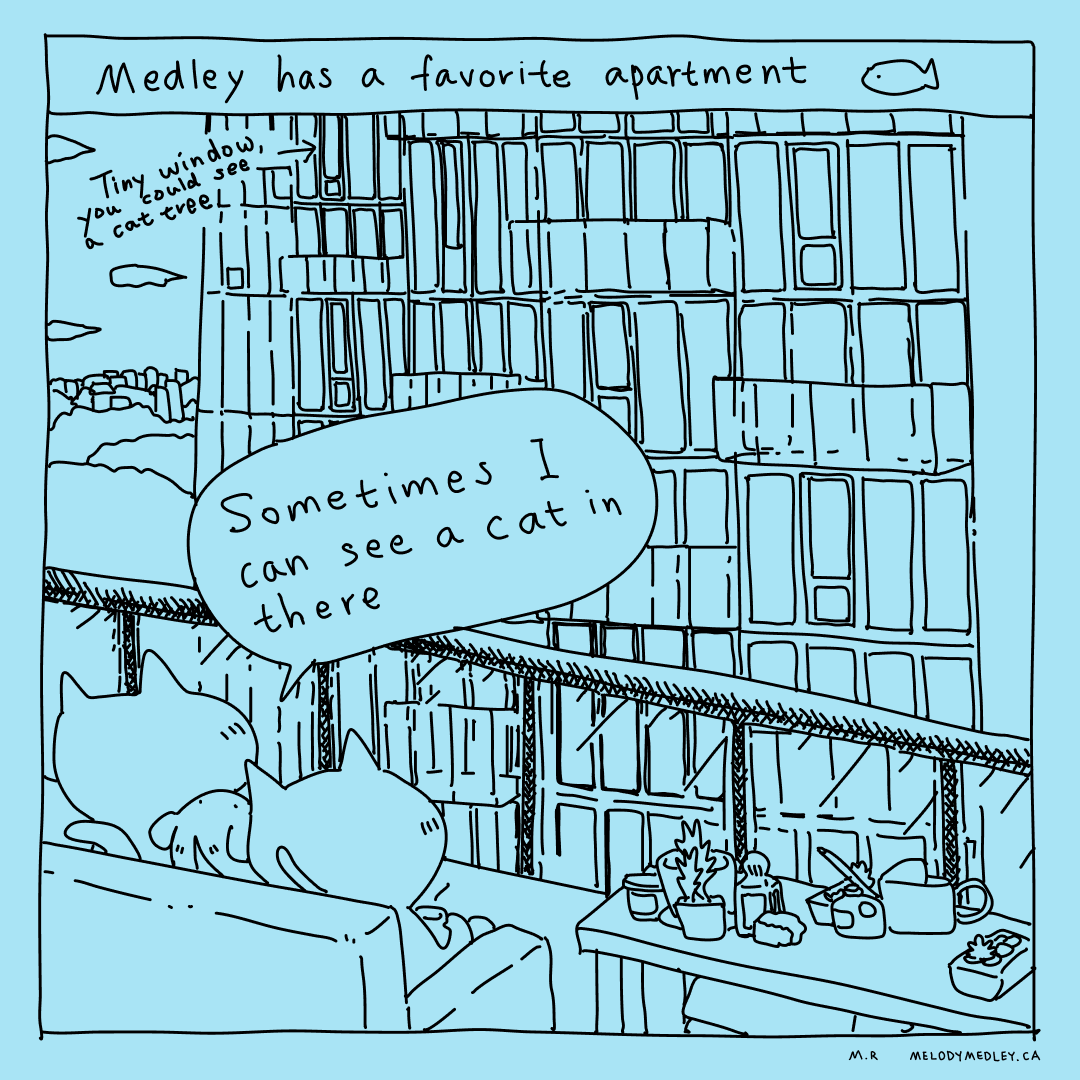 Medley has a favorite apartment
Tiny window,
you could see
a cat tree
Sometimes I
can see a cat in
there
M.R MELODYMEDLEY.CA